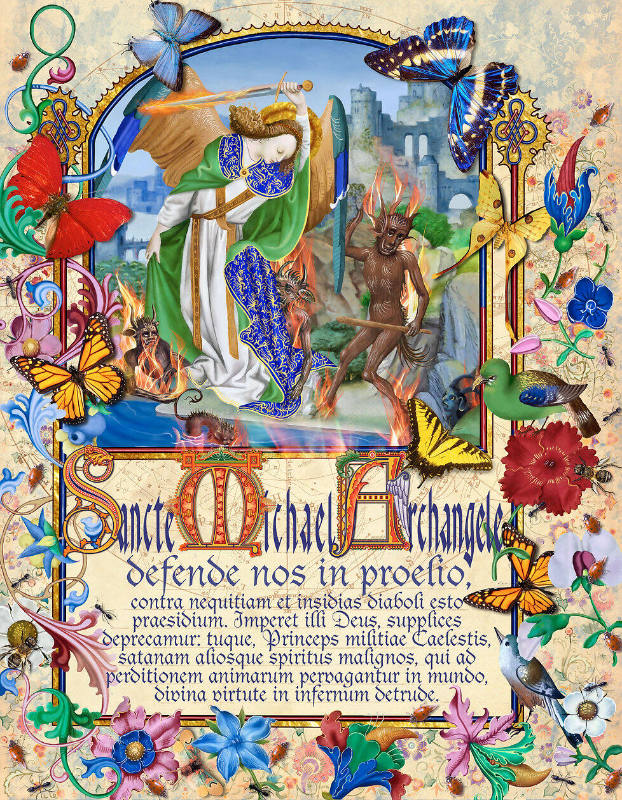 Sancte Michael Archangele
defende nos in proelio,
contra nequitiam et insidias diaboli esto
praesidium. Imperet illi Deus, supplices
deprecamur: tuque, Princeps militiae Caelestis,
satanam aliosque spiritus malignos, qui ad
perditionem animarum pervagantur in mundo,
divina virtute in infernum detrude.